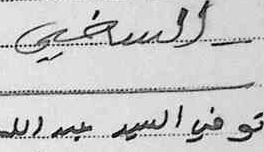 السخي
توفي السيد عبد الله